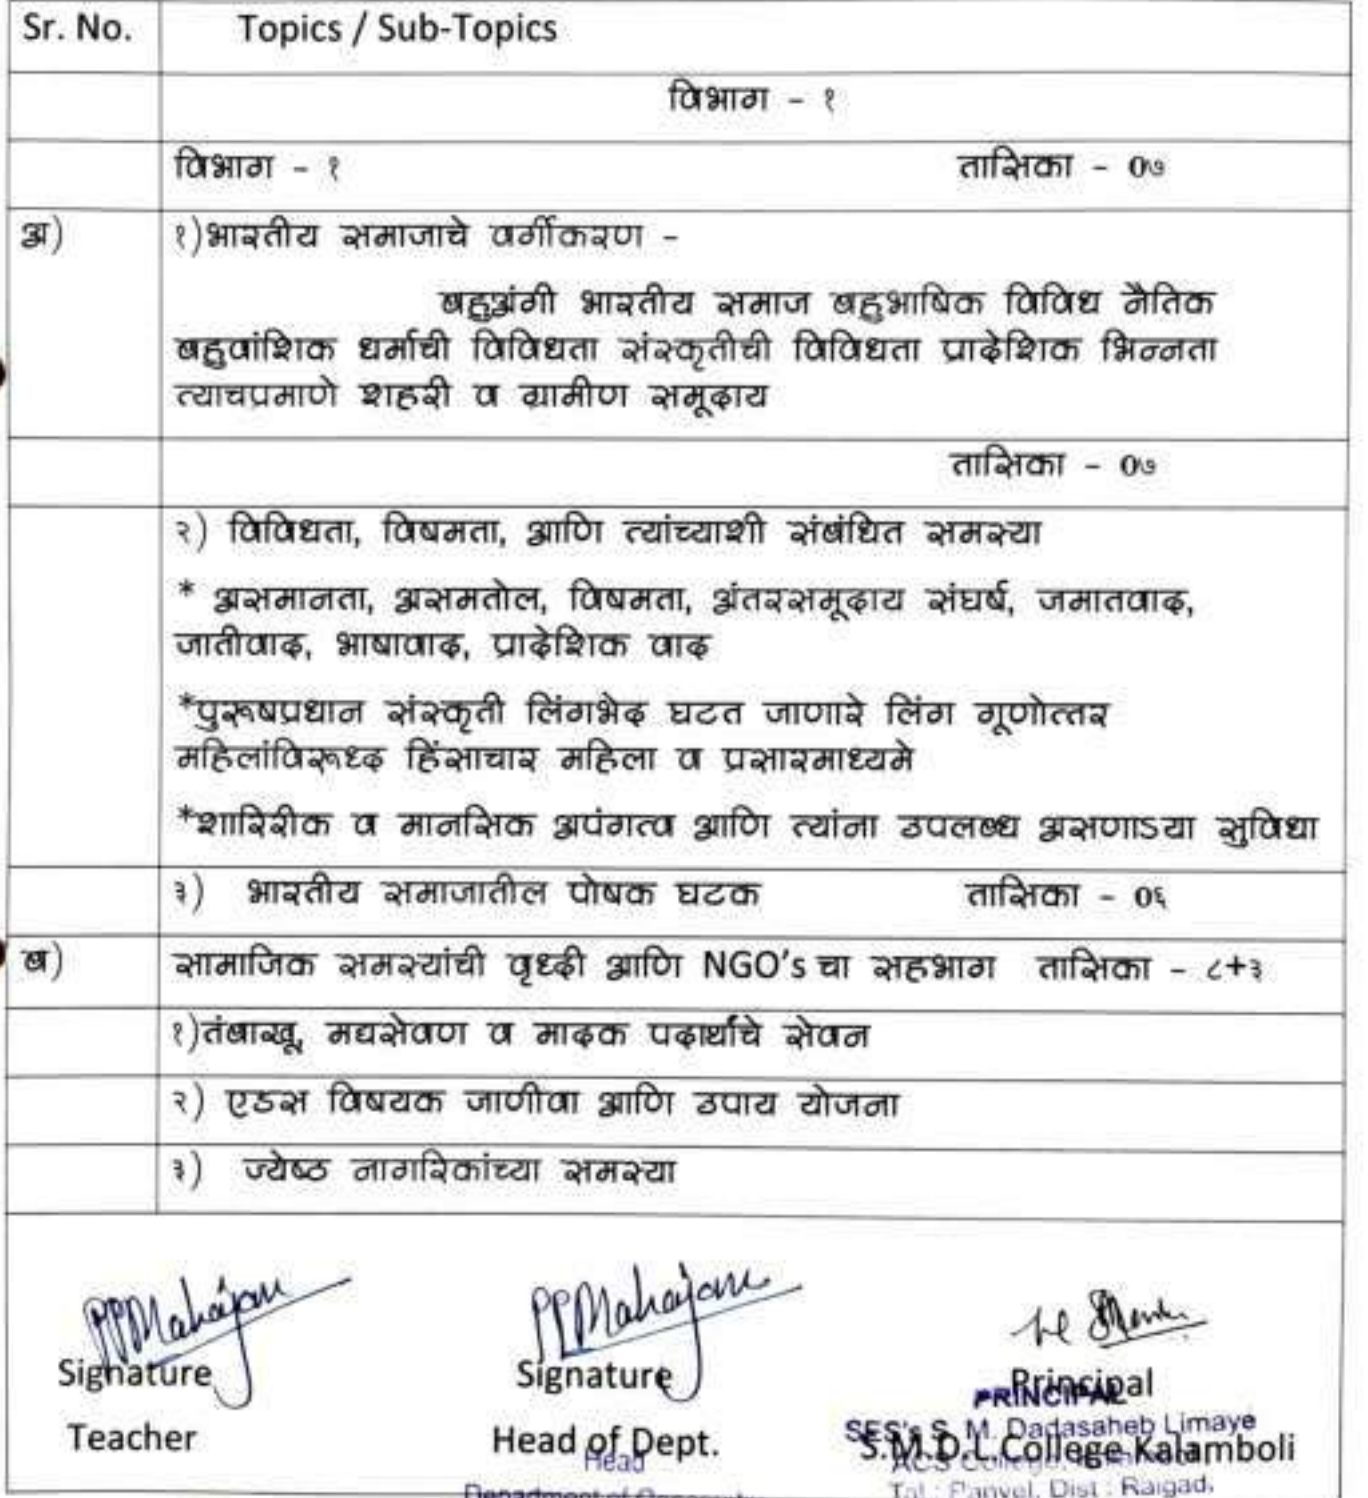 Sr. No. Topics / Sub-Topics
विभाग - १
विभाग - १ तासिका - ०७
अ) १)भारतीय समाजाचे वर्गीकरण -
बहुअंगी भारतीय समाज बहुभाषिक विविध नैतिक
बहुवांशिक धर्माची विविधता संस्कृतीची विविधता प्रादेशिक भिन्नता
त्याचप्रमाणे शहरी व ग्रामीण समूदाय
तासिका - ०७
२) विविधता, विषमता, आणि त्यांच्याशी संबंधित समस्या
* असमानता, असमतोल, विषमता, अंतरसमूदाय संघर्ष, जमातवाद,
जातीवाद, भाषावाद, प्रादेशिक वाद
*पुरूषप्रधान संस्कृती लिंगभेद घटत जाणारे लिंग गूणोत्तर
महिलांविरूध्द हिंसाचार महिला व प्रसारमाध्यमे
*शारिरीक व मानसिक अपंगत्व आणि त्यांना उपलब्ध असणाऽया सुविधा
३) भारतीय समाजातील पोषक घटक तासिका - ०६
ब) सामाजिक समस्यांची वृध्दी आणि NGO's चा सहभाग तासिका - ८+३
१)तंबाखू, मद्यसेवण व मादक पदार्थांचे सेवन
२) एडस विषयक जाणीवा आणि उपाय योजना
३) ज्येष्ठ नागरिकांच्या समस्या
PPMahajan PPMahajan
Signature Signature Principal
PRINCIPAL
Teacher Head of Dept. S.M.D.L.College Kalamboli
SES's S. M. Dadasaheb Limaye
Head ACS College
Tal : Panvel, Dist : Raigad.
Department of